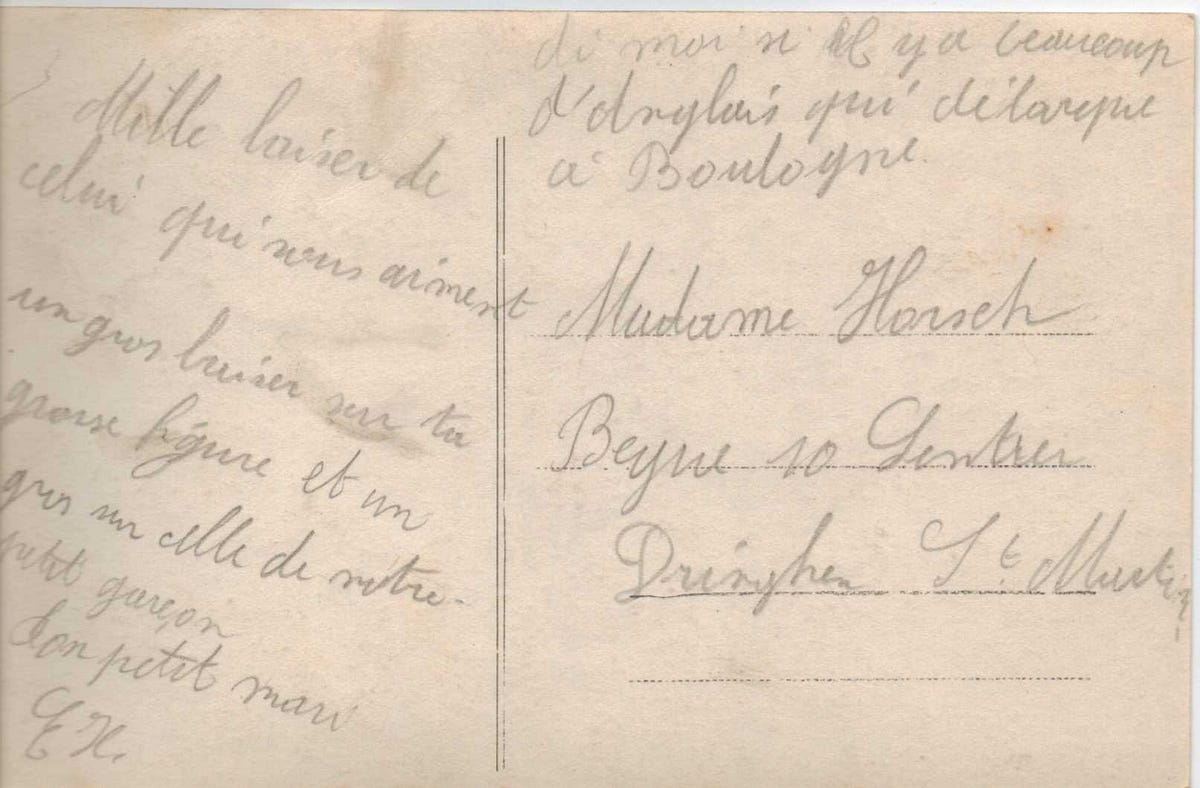 Mille baiser de
celui qui vous aiment
un gros baiser sur ta
grosse figure et un
gros sur celle de nôtre
petit garçon
ton petit mari
E H.
di moi si il y a beaucoup
d'Anglais qui débarque
à Boulogne.
Madame Horsch
10 Sentier
Dringhen St Martin